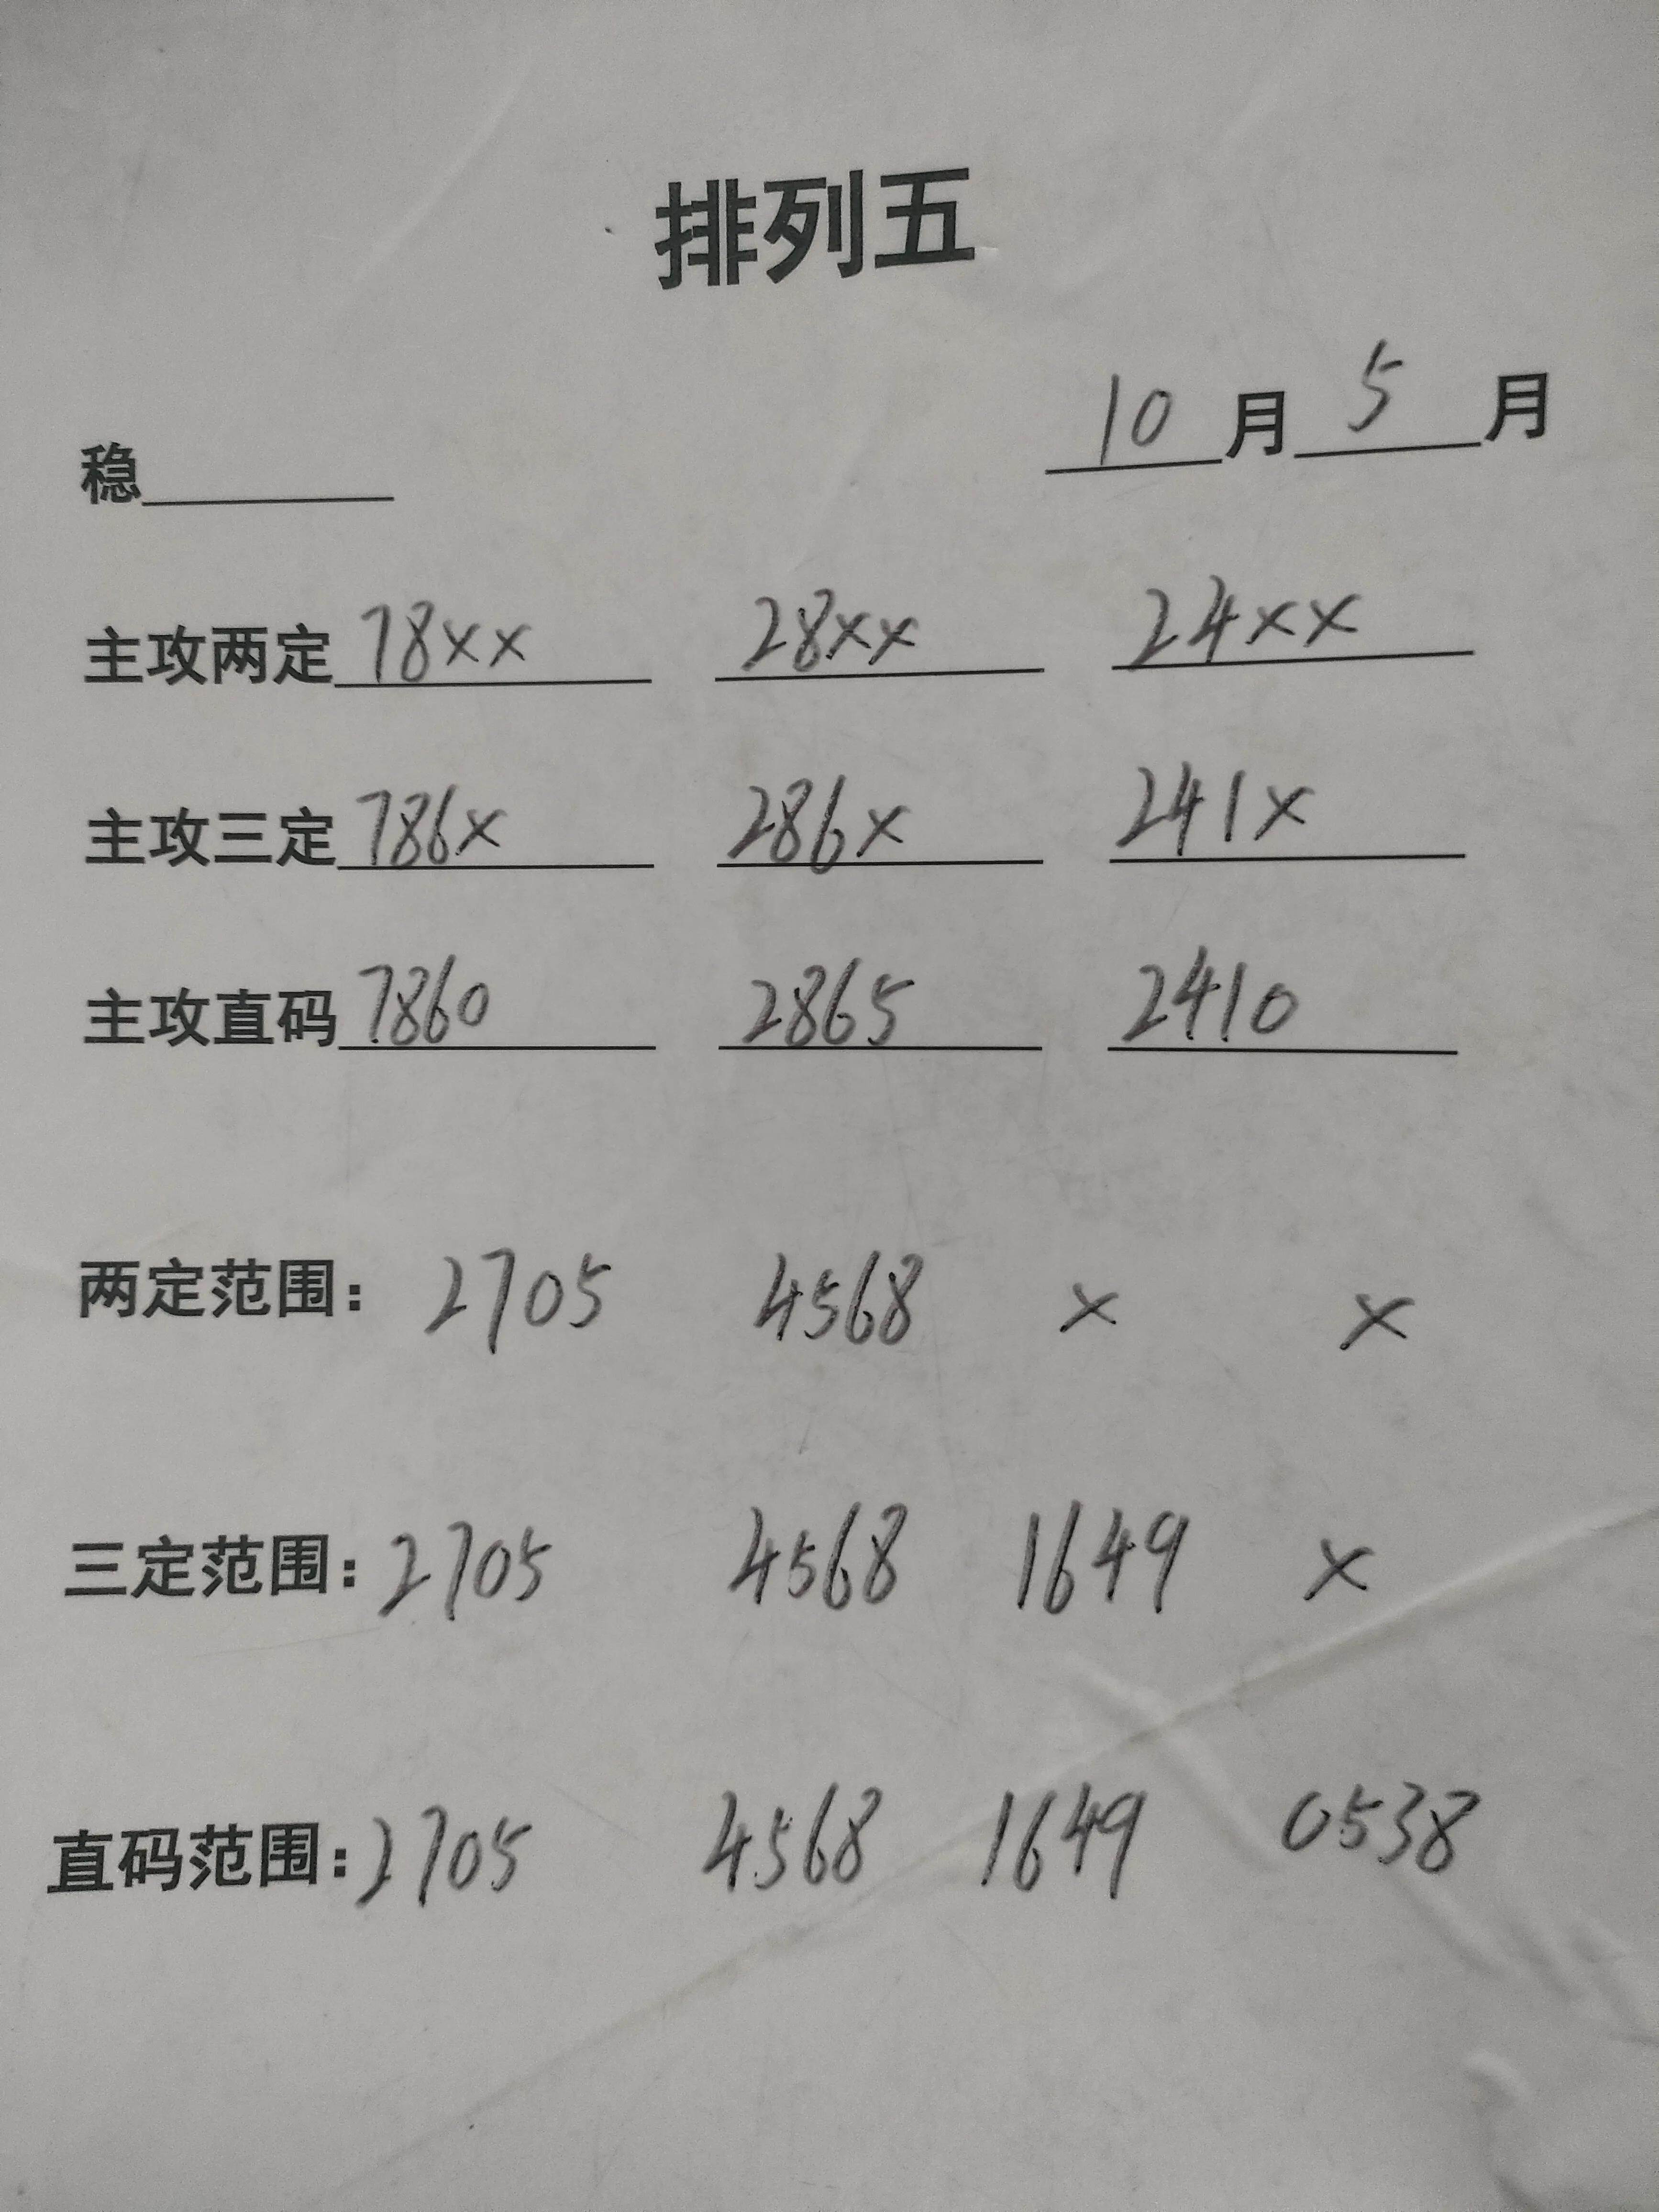 排列五
10月5月
稳
主攻两定 78xx 28xx 24xx
主攻三定 786x 286x 241x
主攻直码 7860 2865 2410
两定范围: 2705 4568 x x
三定范围: 2705 4568 1649 x
直码范围: 2705 4568 1649 0538